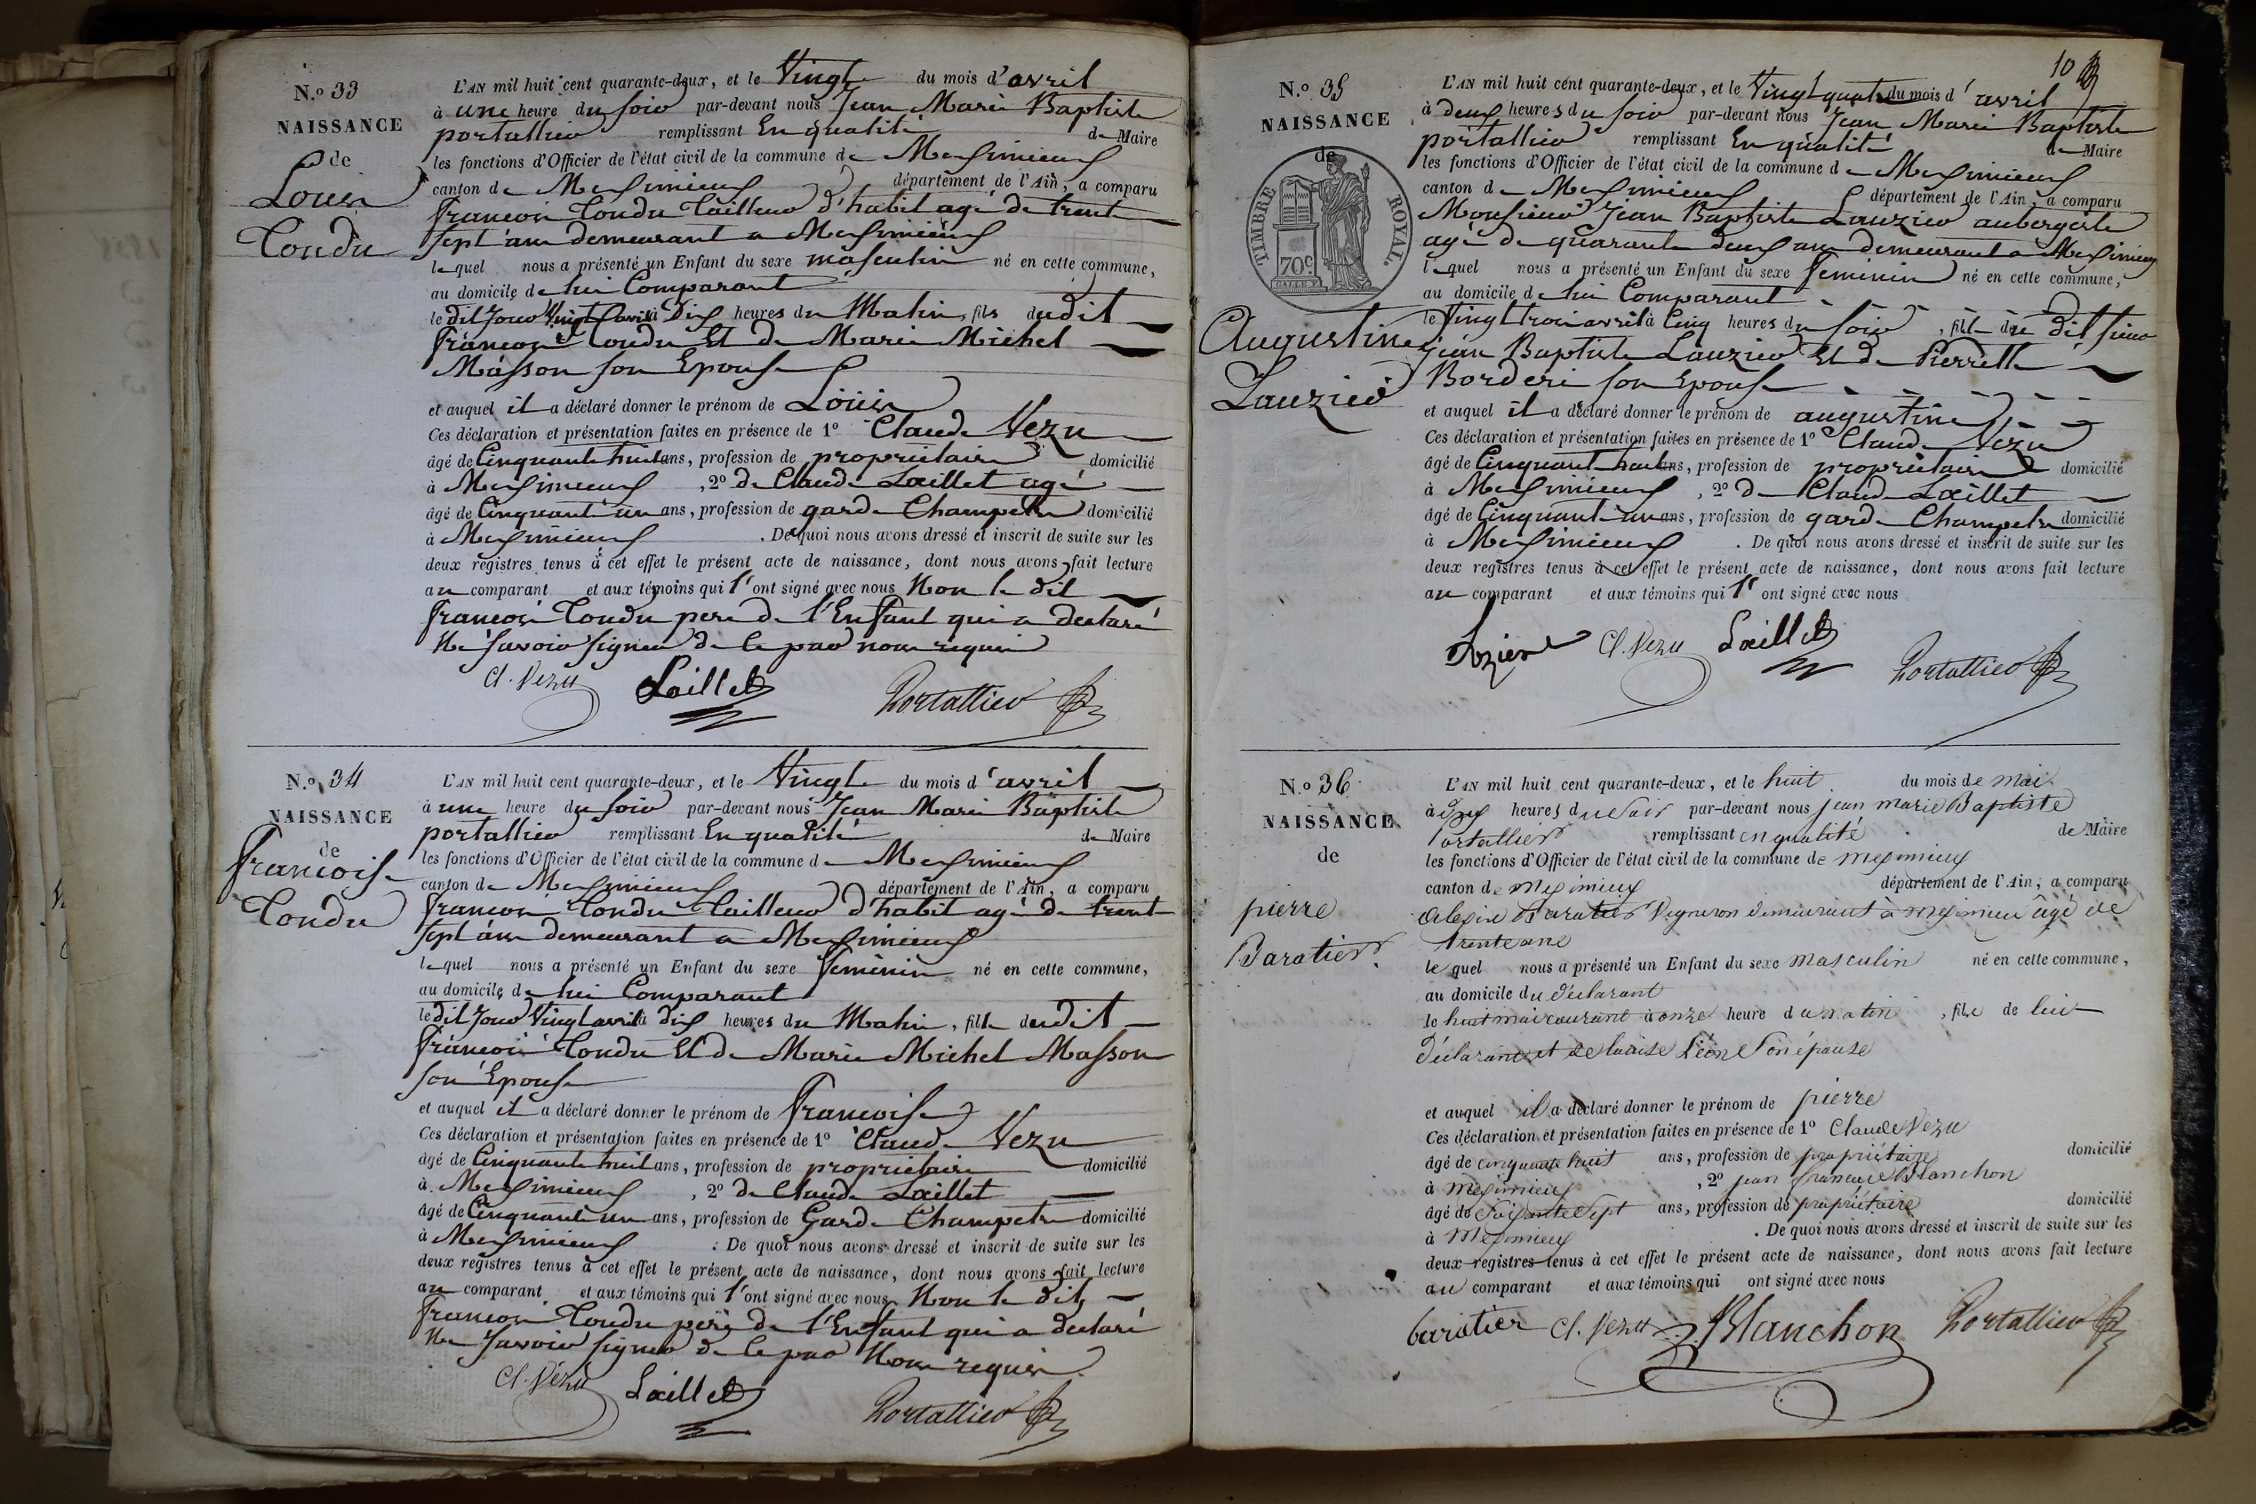 N.º 33
NAISSANCE
de
Louis
Tondu
L'AN mil huit cent quarante-deux, et le Vingt du mois d'avril
à une heure du soir par-devant nous Jean Marie Baptiste
portallier remplissant En qualité de Maire
les fonctions d'Officier de l'état civil de la commune de Meximieux
canton de Meximieux département de l'Ain, a comparu
françois Tondu Tailleur d'habit agé de trente
sept ans demeurant a Meximieux
lequel nous a présenté un Enfant du sexe masculin né en cette commune,
au domicile de lui Comparant
le dit Jour Vingt avril à Dix heures du Matin, fils dudit
françois Tondu Et de Marie Michel
Masson son Epouse
et auquel il a déclaré donner le prénom de Louis
Ces déclaration et présentation faites en présence de 1º Claude Vezu
âgé de Cinquante huit ans, profession de propriétaire domicilié
à Meximieux, 2º de Claude Laillet agé
âgé de Cinquant un ans, profession de garde Champetre domicilié
à Meximieux. De quoi nous avons dressé et inscrit de suite sur les
deux registres tenus à cet effet le présent acte de naissance, dont nous avons fait lecture
au comparant et aux témoins qui l'ont signé avec nous Non le dit
françois Tondu pere de l'Enfant qui a declaré
Ne savoir signer de ce par nous requis
Cl. Vezu Laillet Portallier
N.º 34
NAISSANCE
de
francoise
Tondu
L'AN mil huit cent quarante-deux, et le Vingt du mois d'avril
à une heure du soir par-devant nous Jean Marie Baptiste
portallier remplissant En qualité de Maire
les fonctions d'Officier de l'état civil de la commune de Meximieux
canton de Meximieux département de l'Ain, a comparu
françois Tondu Tailleur d'habit agé de trente
sept ans demeurant a Meximieux
lequel nous a présenté un Enfant du sexe feminin né en cette commune,
au domicile de lui Comparant
le dit Jour Vingt avril à dix heures du Matin, fille dudit
françois Tondu Et de Marie Michel Masson
son Epouse
et auquel il a déclaré donner le prénom de francoise
Ces déclaration et présentation faites en présence de 1º Claude Vezu
âgé de Cinquante huit ans, profession de proprietaire domicilié
à Meximieux, 2º de Claude Laillet
âgé de Cinquante un ans, profession de Garde Champetre domicilié
à Meximieux. De quoi nous avons dressé et inscrit de suite sur les
deux registres tenus à cet effet le présent acte de naissance, dont nous avons fait lecture
au comparant et aux témoins qui l'ont signé avec nous Non le dit
françois Tondu père de l'Enfant qui a declaré
Ne savoir signer de ce par Nous requis
Cl. Vezu Laillet Portallier
10
N.º 35
NAISSANCE
de
TIMBRE ROYAL.
70c
Augustine
Lauzier
L'AN mil huit cent quarante-deux, et le Vingt quatre du mois d'avril
à deux heures du soir par-devant nous Jean Marie Baptiste
portallier remplissant En qualité de Maire
les fonctions d'Officier de l'état civil de la commune de Meximieux
canton de Meximieux département de l'Ain, a comparu
Monsieur Jean Baptiste Lauzier aubergiste
agé de quarante deux ans demeurant a Meximieux
lequel nous a présenté un Enfant du sexe feminin né en cette commune,
au domicile de lui Comparant
le Vingt trois avril à Cinq heures du soir, fille du dit sieur
jean Baptiste Lauzier Et de Pierrette
Borderi son Epouse
et auquel il a déclaré donner le prénom de augustine
Ces déclaration et présentation faites en présence de 1º Claude Vezu
âgé de Cinquante huit ans, profession de propriétaire domicilié
à Meximieux, 2º de Claude Laillet
âgé de Cinquant un ans, profession de garde Champetre domicilié
à Meximieux. De quoi nous avons dressé et inscrit de suite sur les
deux registres tenus à cet effet le présent acte de naissance, dont nous avons fait lecture
au comparant et aux témoins qui l'ont signé avec nous
Cl. Vezu Laillet Portallier
N.º 36
NAISSANCE
de
pierre
Baratier
L'AN mil huit cent quarante-deux, et le huit du mois de mai
à deux heures du soir par-devant nous jean marie Baptiste
Portallier remplissant en qualité de Maire
les fonctions d'Officier de l'état civil de la commune de meximieux
canton de meximieux département de l'Ain, a comparu
Baratier Vigneron demeurant à meximieux âgé de
trente ans
lequel nous a présenté un Enfant du sexe masculin né en cette commune,
au domicile du déclarant
le huit mai courant à onze heure du matin, fils de lui
déclarant et de Son épouse
et auquel il a déclaré donner le prénom de pierre
Ces déclaration et présentation faites en présence de 1º Claude Vezu
âgé de cinquante huit ans, profession de propriétaire domicilié
à meximieux, 2º jean Blanchon
âgé de soixante sept ans, profession de propriétaire domicilié
à meximieux. De quoi nous avons dressé et inscrit de suite sur les
deux registres tenus à cet effet le présent acte de naissance, dont nous avons fait lecture
au comparant et aux témoins qui ont signé avec nous
baratier Cl. Vezu Blanchon Portallier